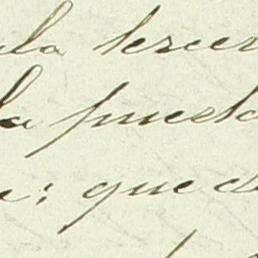 ula tercer
la puesta
e: que de